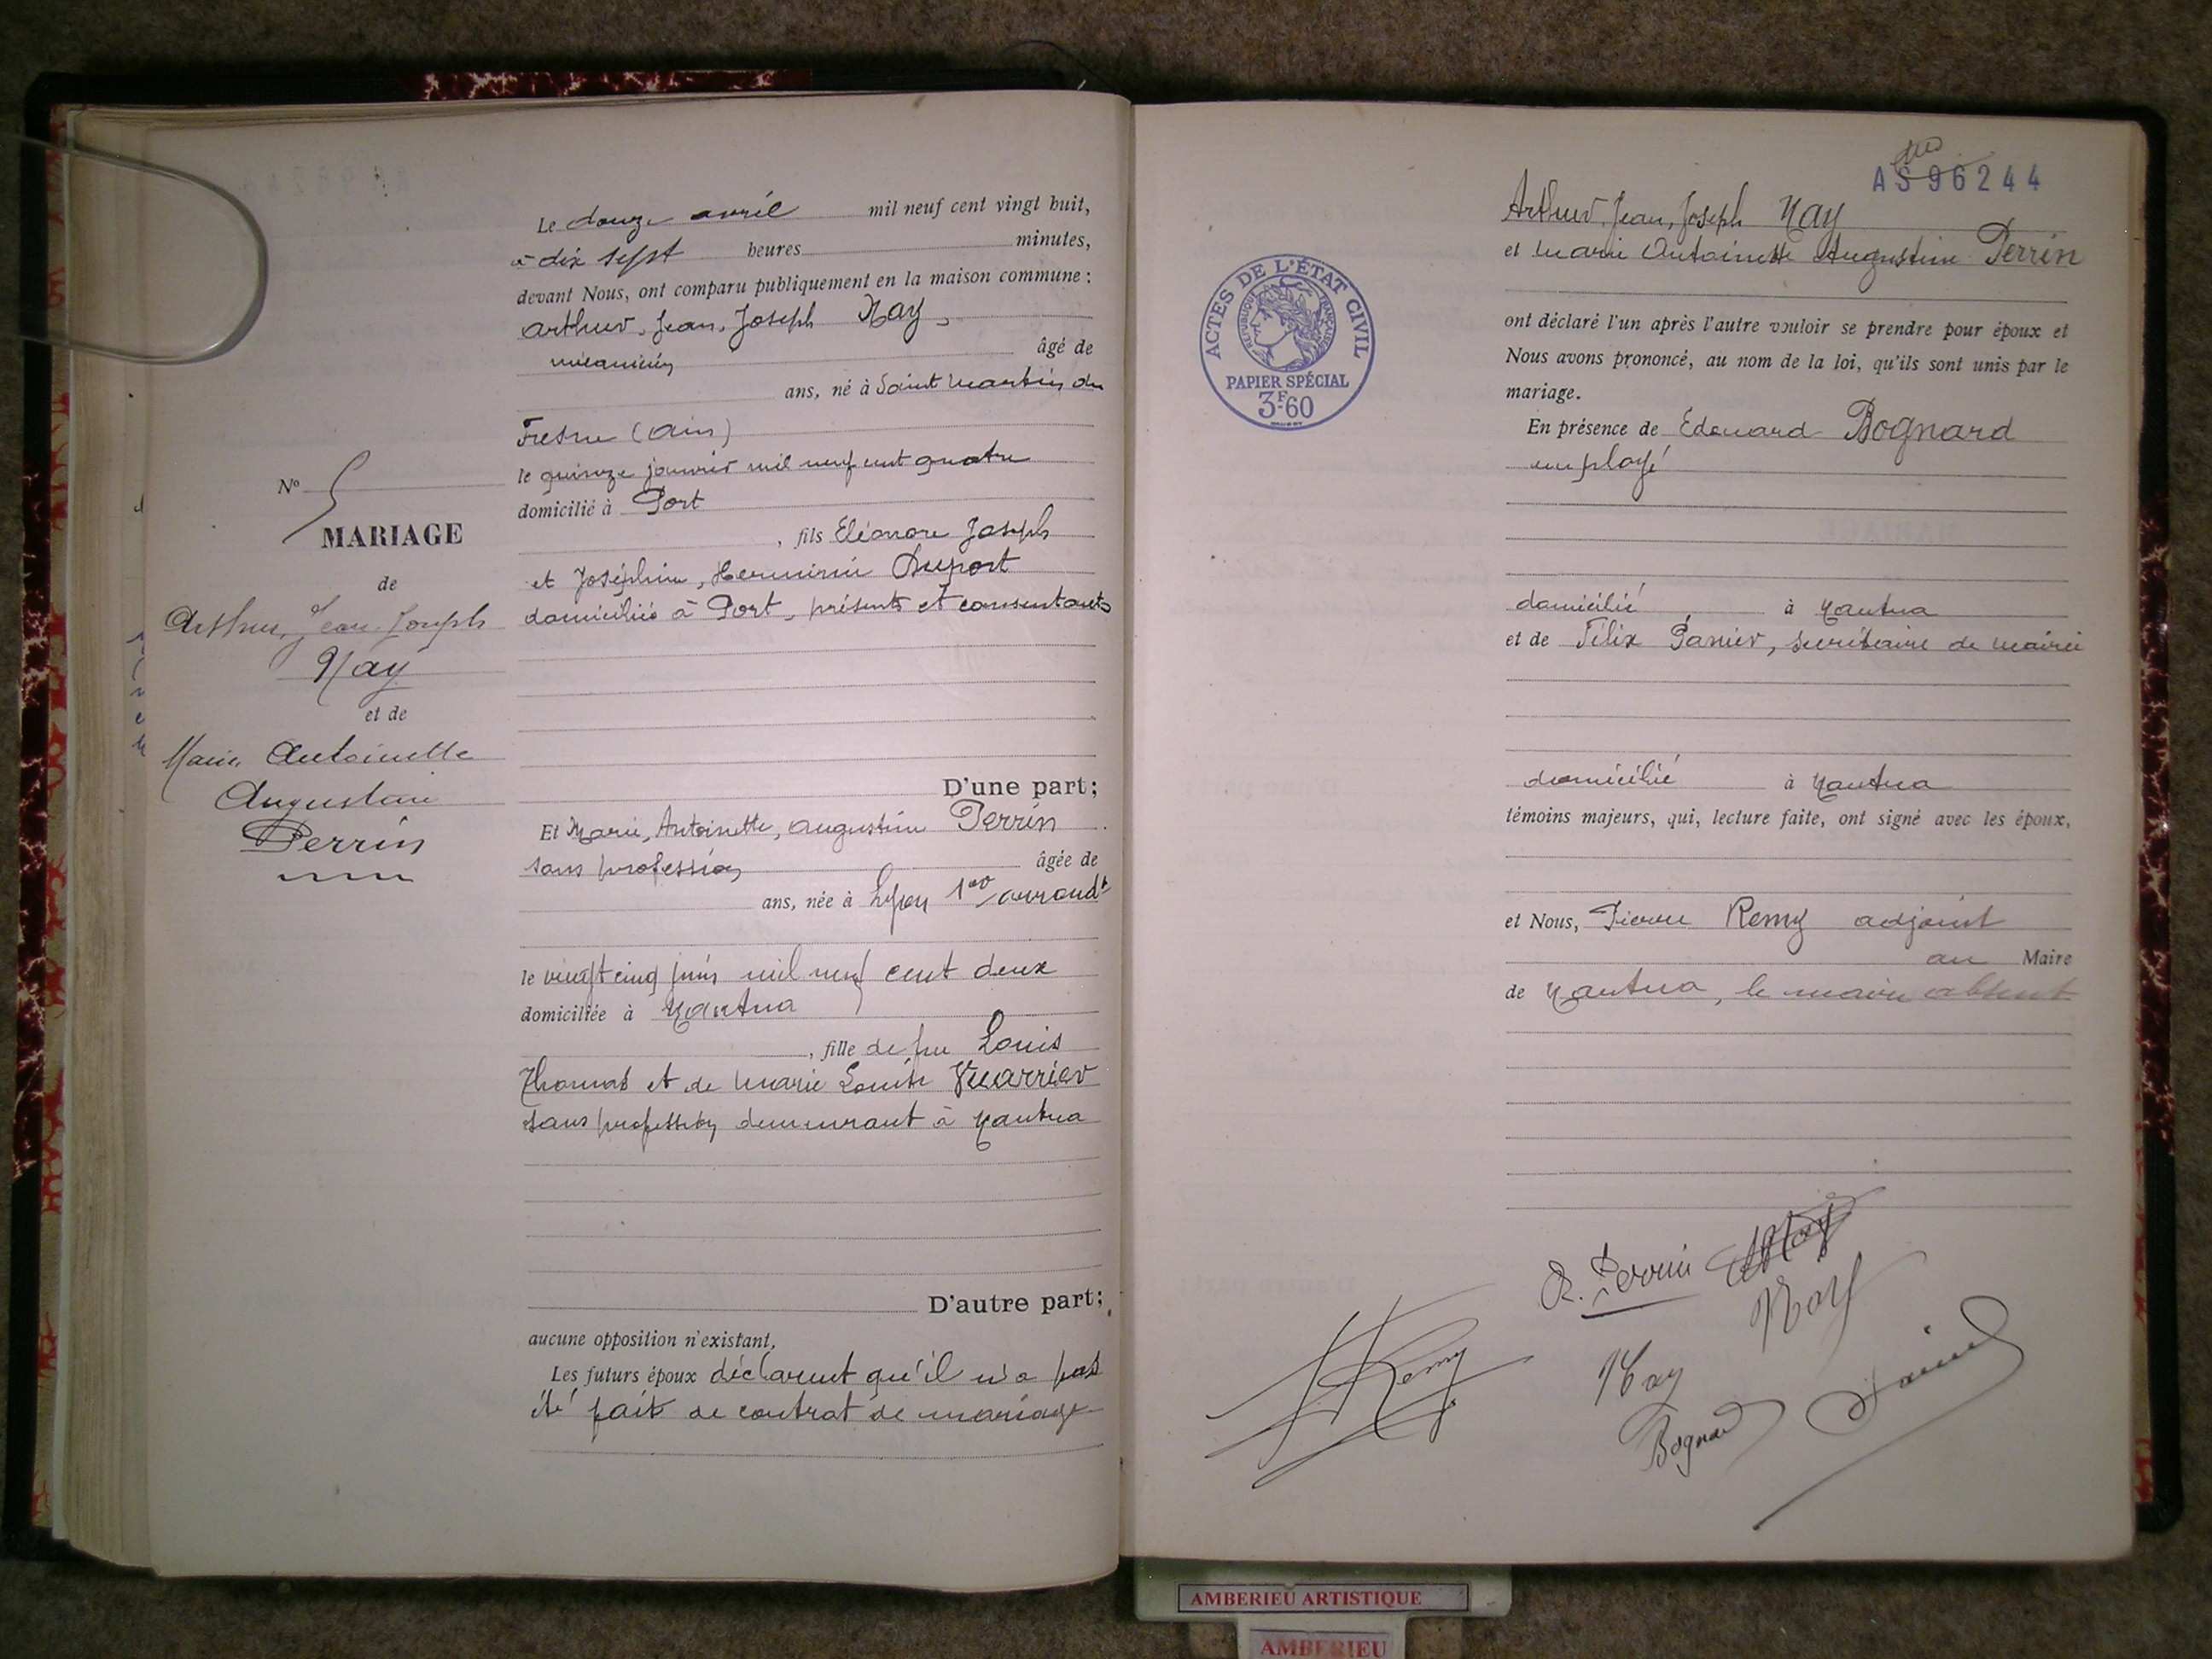 Le douze avril mil neuf cent vingt huit,
à dix sept heures minutes,
devant Nous, ont comparu publiquement en la maison commune :
Arthur, Jean, Joseph Nay,
mécanicien âgé de
ans, né à Saint Martin du
Fresne (Ain)
le quinze janvier mil neuf cent quatre
domicilié à Port
, fils Eléonore Joseph
et Joséphine, Herminie Duport
domiciliés à Port, présents et consentants
D'une part;
Et Marie, Antoinette, Augustine Perrin
sans profession âgée de
ans, née à Lyon 1er arrondt
le vingt cinq juin mil neuf cent deux
domiciliée à Nantua
, fille de feu Louis
Thomas et de Marie Louise Vuarrier
sans profession demeurant à Nantua
D'autre part;
aucune opposition n'existant,
Les futurs époux déclarent qu'il n'a pas
été fait de contrat de mariage
No 5
MARIAGE
de
Arthur, Jean Joseph
Nay
et de
Marie Antoinette
Augustine
Perrin
AS96244
ACTES DE L'ÉTAT CIVIL
RÉPUBLIQUE FRANÇAISE
PAPIER SPÉCIAL
3F60
Arthur, Jean, Joseph Nay
et Marie Antoinette Augustine Perrin
ont déclaré l'un après l'autre vouloir se prendre pour époux et
Nous avons prononcé, au nom de la loi, qu'ils sont unis par le
mariage.
En présence de Edouard Bognard
employé
domicilié à Nantua
et de Félix Panier, secrétaire de mairie
domicilié à Nantua
témoins majeurs, qui, lecture faite, ont signé avec les époux,
et Nous, Pierre Remy adjoint
au Maire
de Nantua, le maire absent
A. Perrin ANay
Nay
Remy
Nay
Bognard
AMBERIEU ARTISTIQUE
AMBERIEU